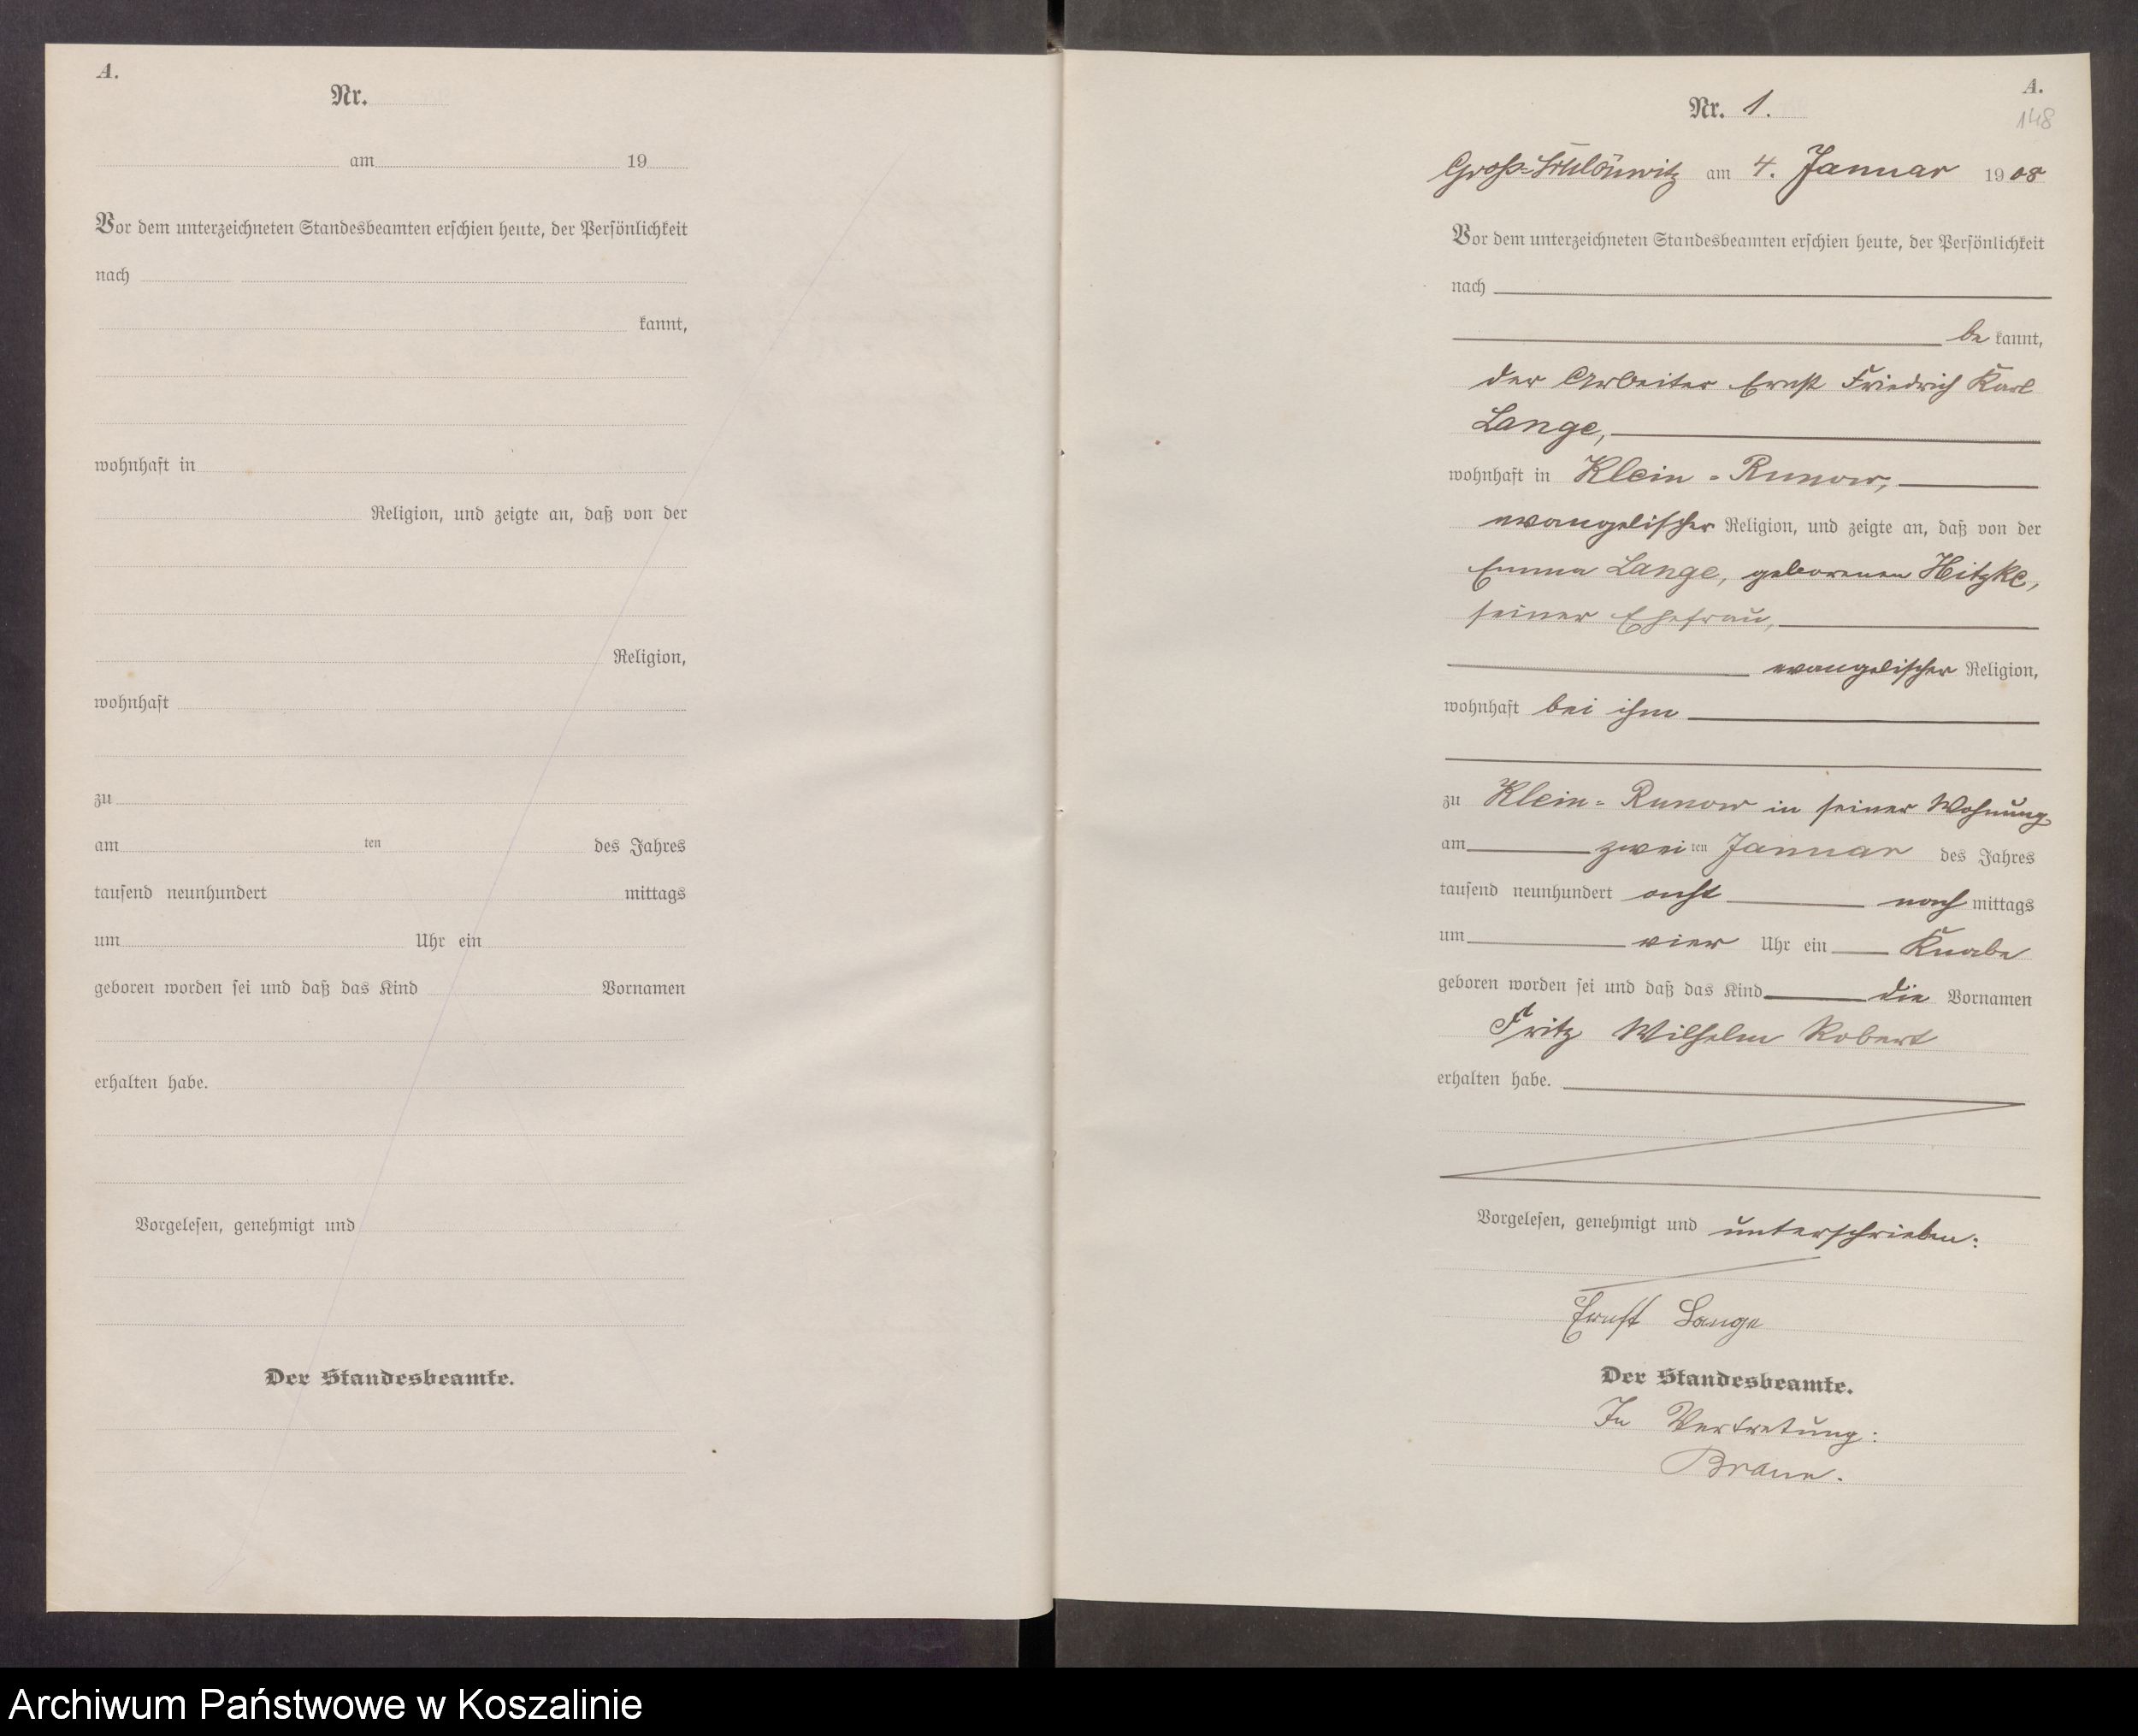 A.
Nr.
am 19
Vor dem unterzeichneten Standesbeamten erschien heute, der Persönlichkeit
nach
kannt,
wohnhaft in
Religion, und zeigte an, daß von der
Religion,
wohnhaft
zu
am ten des Jahres
tausend neunhundert mittags
um Uhr ein
geboren worden sei und daß das Kind Vornamen
erhalten habe.
Vorgelesen, genehmigt und
Der Standesbeamte.
A.
148
Nr. 1.
am 4. Januar 1908
Vor dem unterzeichneten Standesbeamten erschien heute, der Persönlichkeit
nach
be kannt,
der Arbeiter Ernst Friedrich Karl
Lange,
wohnhaft in Klein-Runow,
evangelischer Religion, und zeigte an, daß von der
Emma Lange, geborenen Hitzke,
seiner Ehefrau,
evangelischer Religion,
wohnhaft bei ihm
zu Klein-Runow in seiner Wohnung
am zweiten Januar des Jahres
tausend neunhundert acht nach mittags
um vier Uhr ein Knabe
geboren worden sei und daß das Kind die Vornamen
Fritz Wilhelm Robert
erhalten habe.
Vorgelesen, genehmigt und unterschrieben:
Ernst Lange
Der Standesbeamte.
In Vertretung:
Braun.
Archiwum Państwowe w Koszalinie